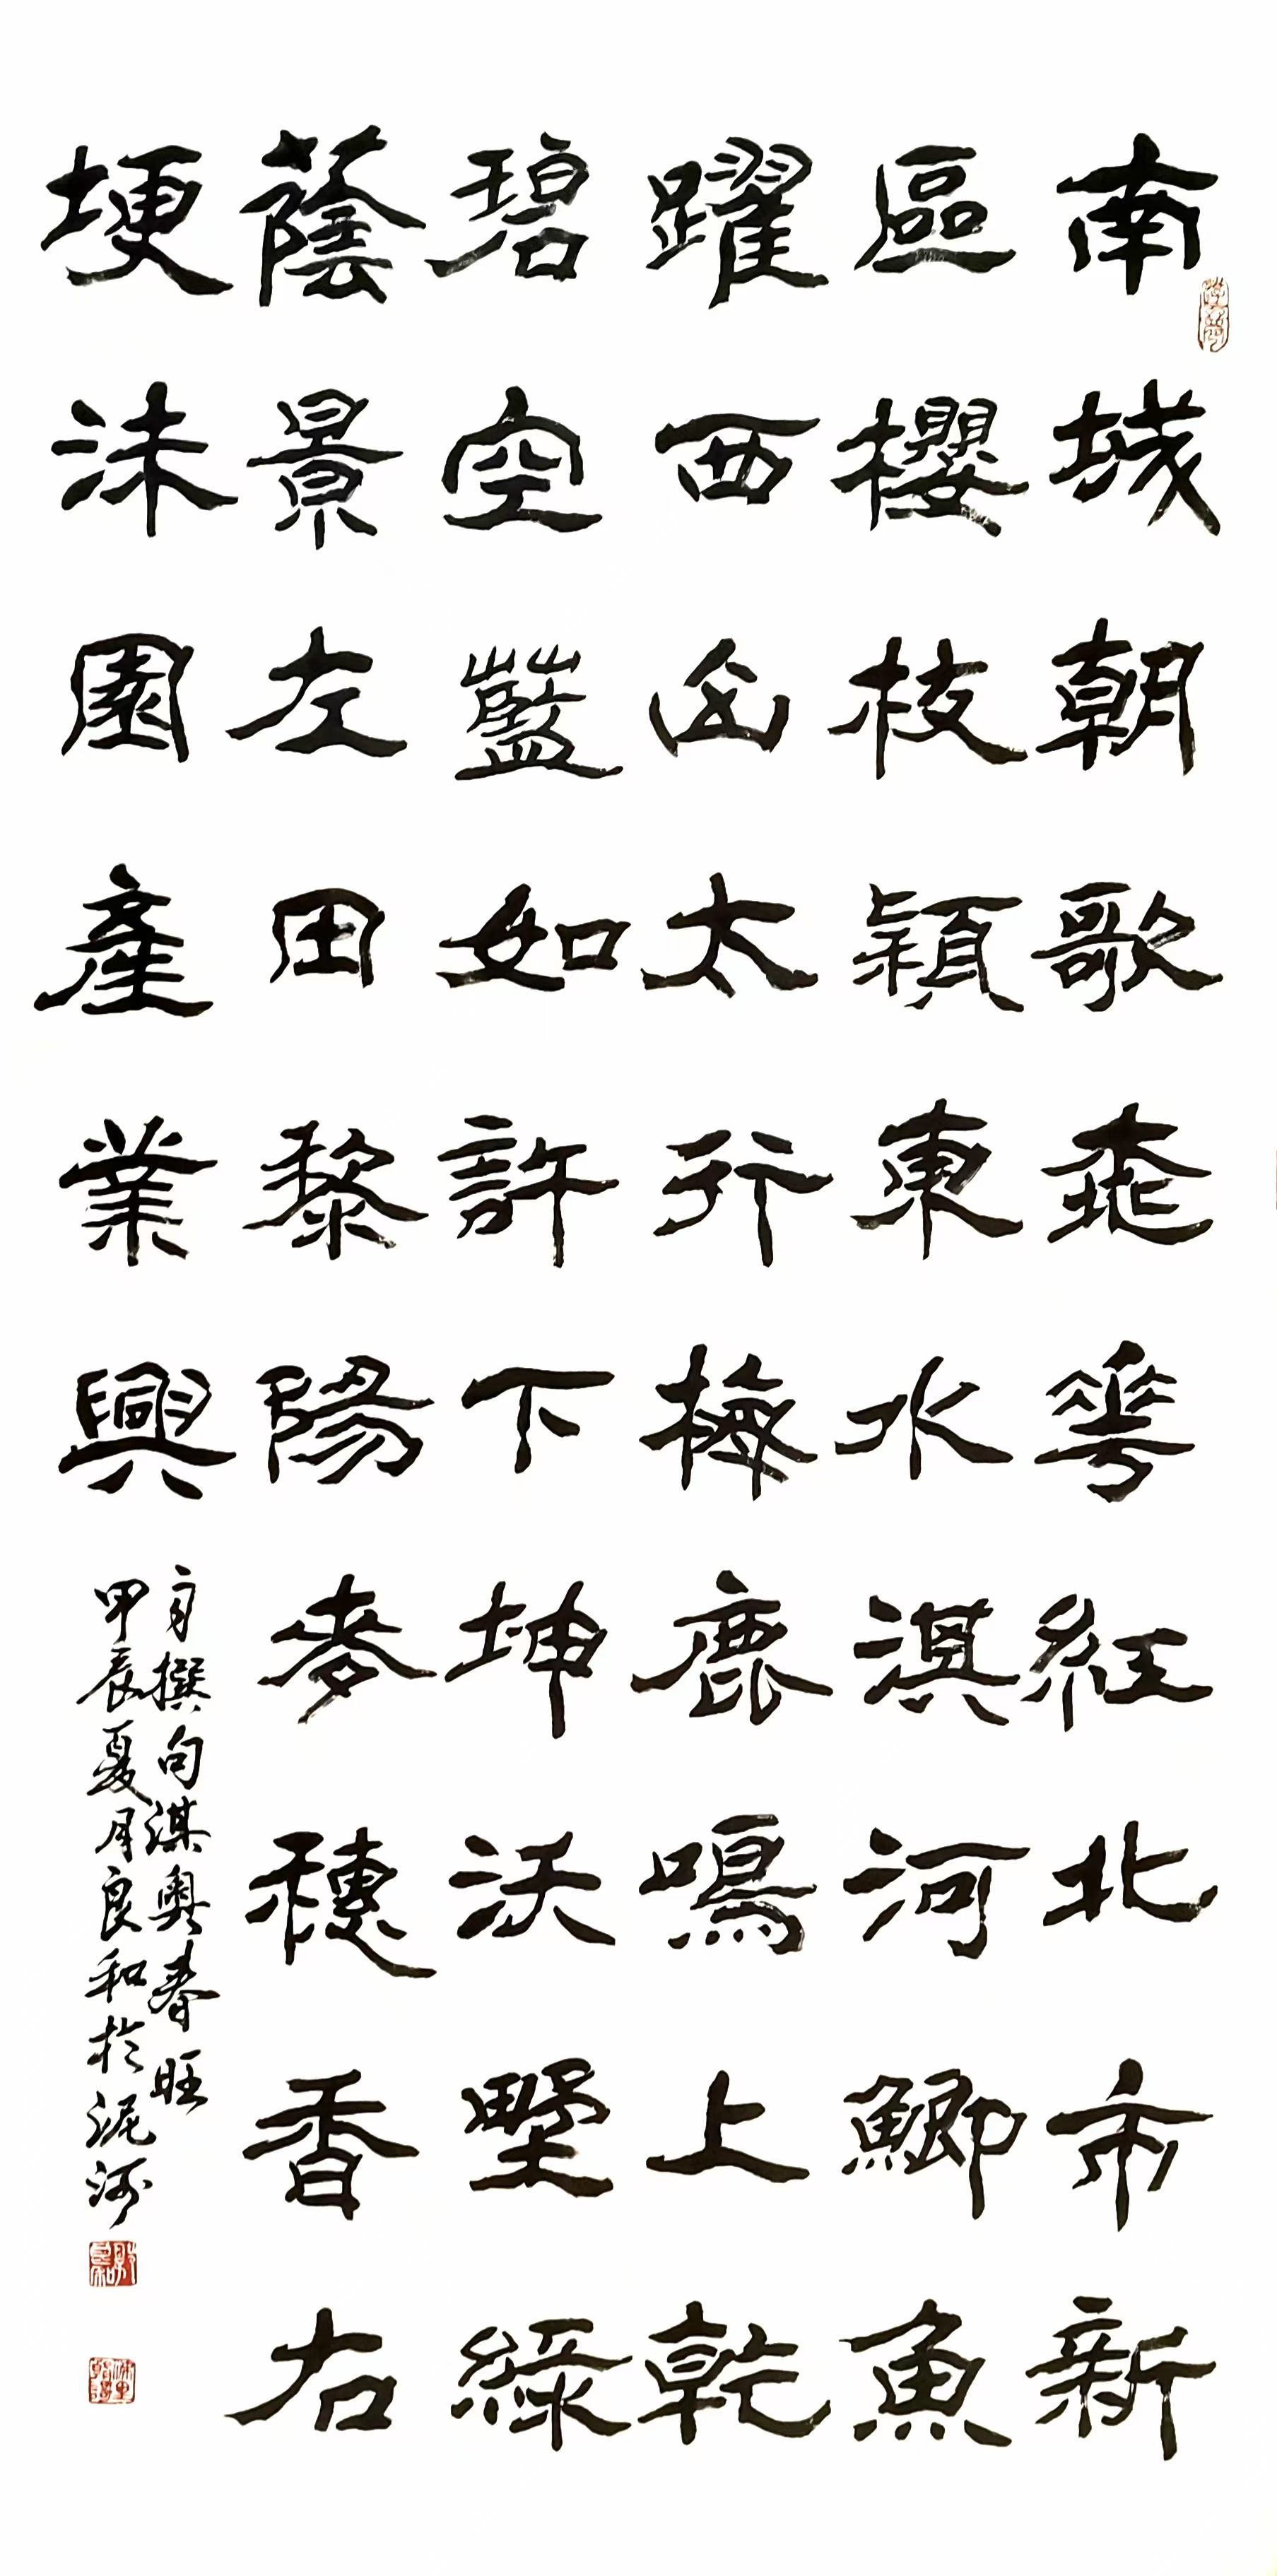 南城朝歌桃華紅北市新
區櫻枝穎東水淇河鯽魚
躍西山太行梅鹿鳴上乾
碧空藍如許下坤沃野綠
蔭景左田黎陽麥穗香右
埂沬園產業興
自撰句淇奥春旺
甲辰夏月良和於泥河